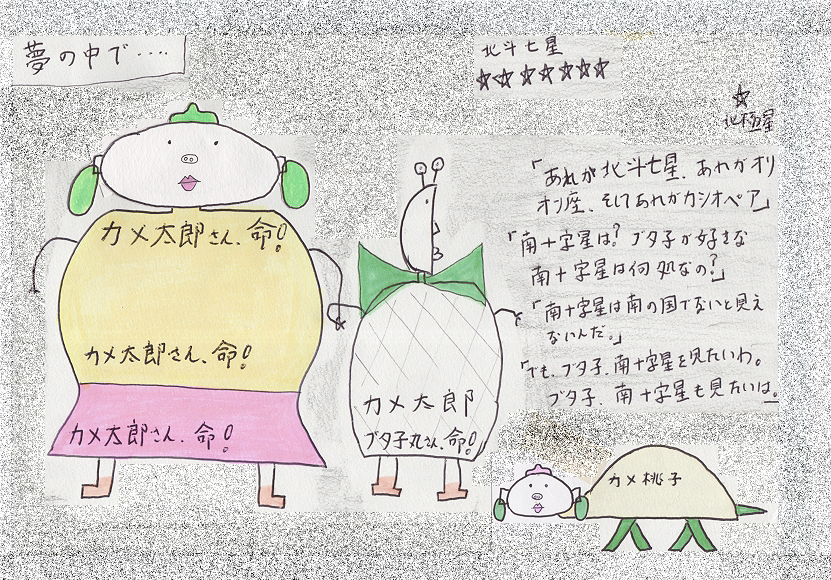 夢の中で‥‥
北斗七星
☆☆☆☆☆☆☆
☆
北極星
「あれが北斗七星、あれがオリ
オン座、そしてあれがカシオペア」
「南十字星は？ブタ子が好きな
南十字星は何処なの？」
「南十字星は南の国でないと見え
ないんだ。」
「でも、ブタ子、南十字星を見たいわ。
ブタ子、南十字星も見たいは。
カメ太郎さん、命！
カメ太郎さん、命！
カメ太郎さん、命！
カメ太郎
ブタ子丸さん、命！
カメ桃子